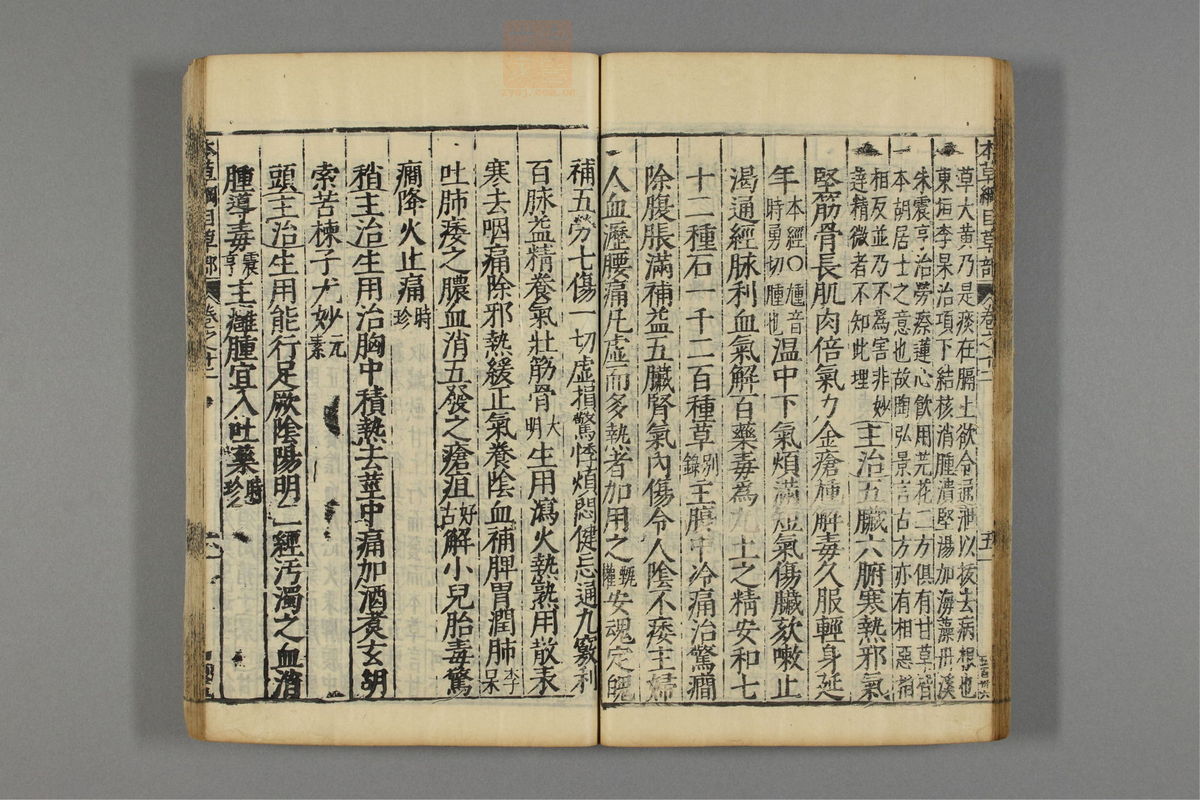 本草綱目草部 卷之十二 五
草大黃乃是痰在膈上欲令通泄以拔去病根也
東垣李杲治項下結核消腫潰堅湯加海藻丹溪
朱震亨治勞瘵蓮心飲用芫花二方俱有甘草皆
本胡居士之意也故陶弘景言古方亦有相惡相
相反並乃不為害非妙
達精微者不知此理
主治五臟六腑寒熱邪氣
堅筋骨長肌肉倍氣力金瘡尰解毒久服輕身延
年本經〇尰音時勇切腫也溫中下氣煩滿短氣傷臟欬嗽止
渴通經脉利血氣解百藥毒為九土之精安和七
十二種石一千二百種草別錄主腹中冷痛治驚癎
除腹脹滿補益五臟腎氣內傷令人陰不痿主婦
人血瀝腰痛凡虛而多熱者加用之甄權安魂定魄
補五勞七傷一切虛損驚悸煩悶健忘通九竅利
百脉益精養氣壯筋骨大明生用瀉火熱熟用散表
寒去咽痛除邪熱緩正氣養陰血補脾胃潤肺李杲
吐肺痿之膿血消五發之瘡疽好古解小兒胎毒驚
癎降火止痛時珍
稍主治生用治胸中積熱去莖中痛加酒煮玄胡
索苦楝子尤妙元素
頭主治生用能行足厥陰陽明二經汚濁之血消
腫導毒震亨主癰腫宜入吐藥時珍
本草綱目草部 卷之十二